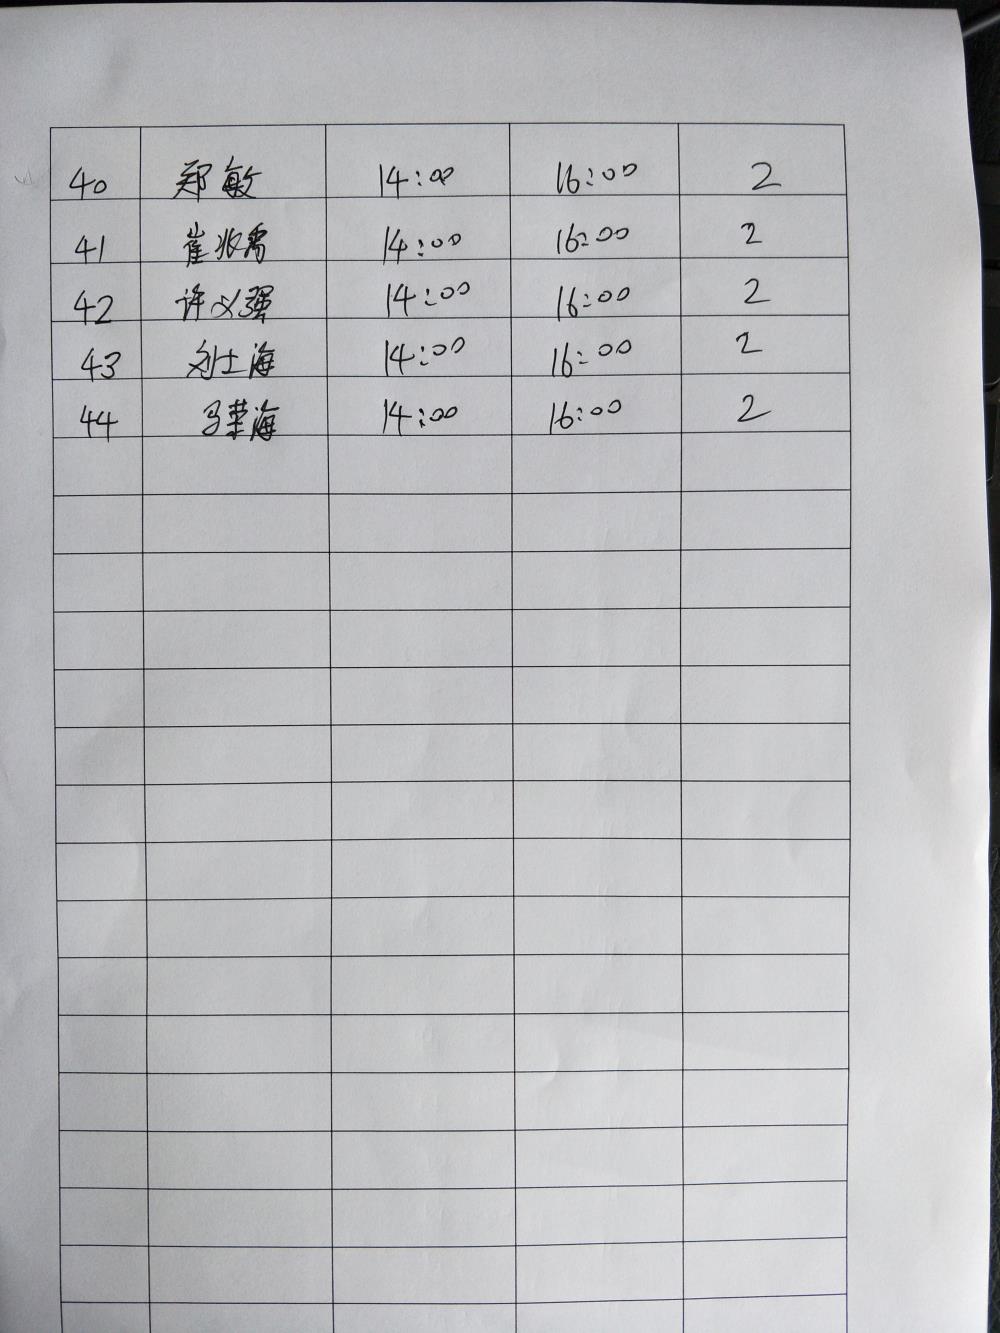 40 郑敏 14:00 16:00 2
41 崔兆雷 14:00 16:00 2
42 许义强 14:00 16:00 2
43 刘士海 14:00 16:00 2
44 马荣海 14:00 16:00 2